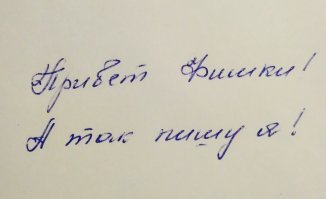 Привет Фишки!
А так пишу я!